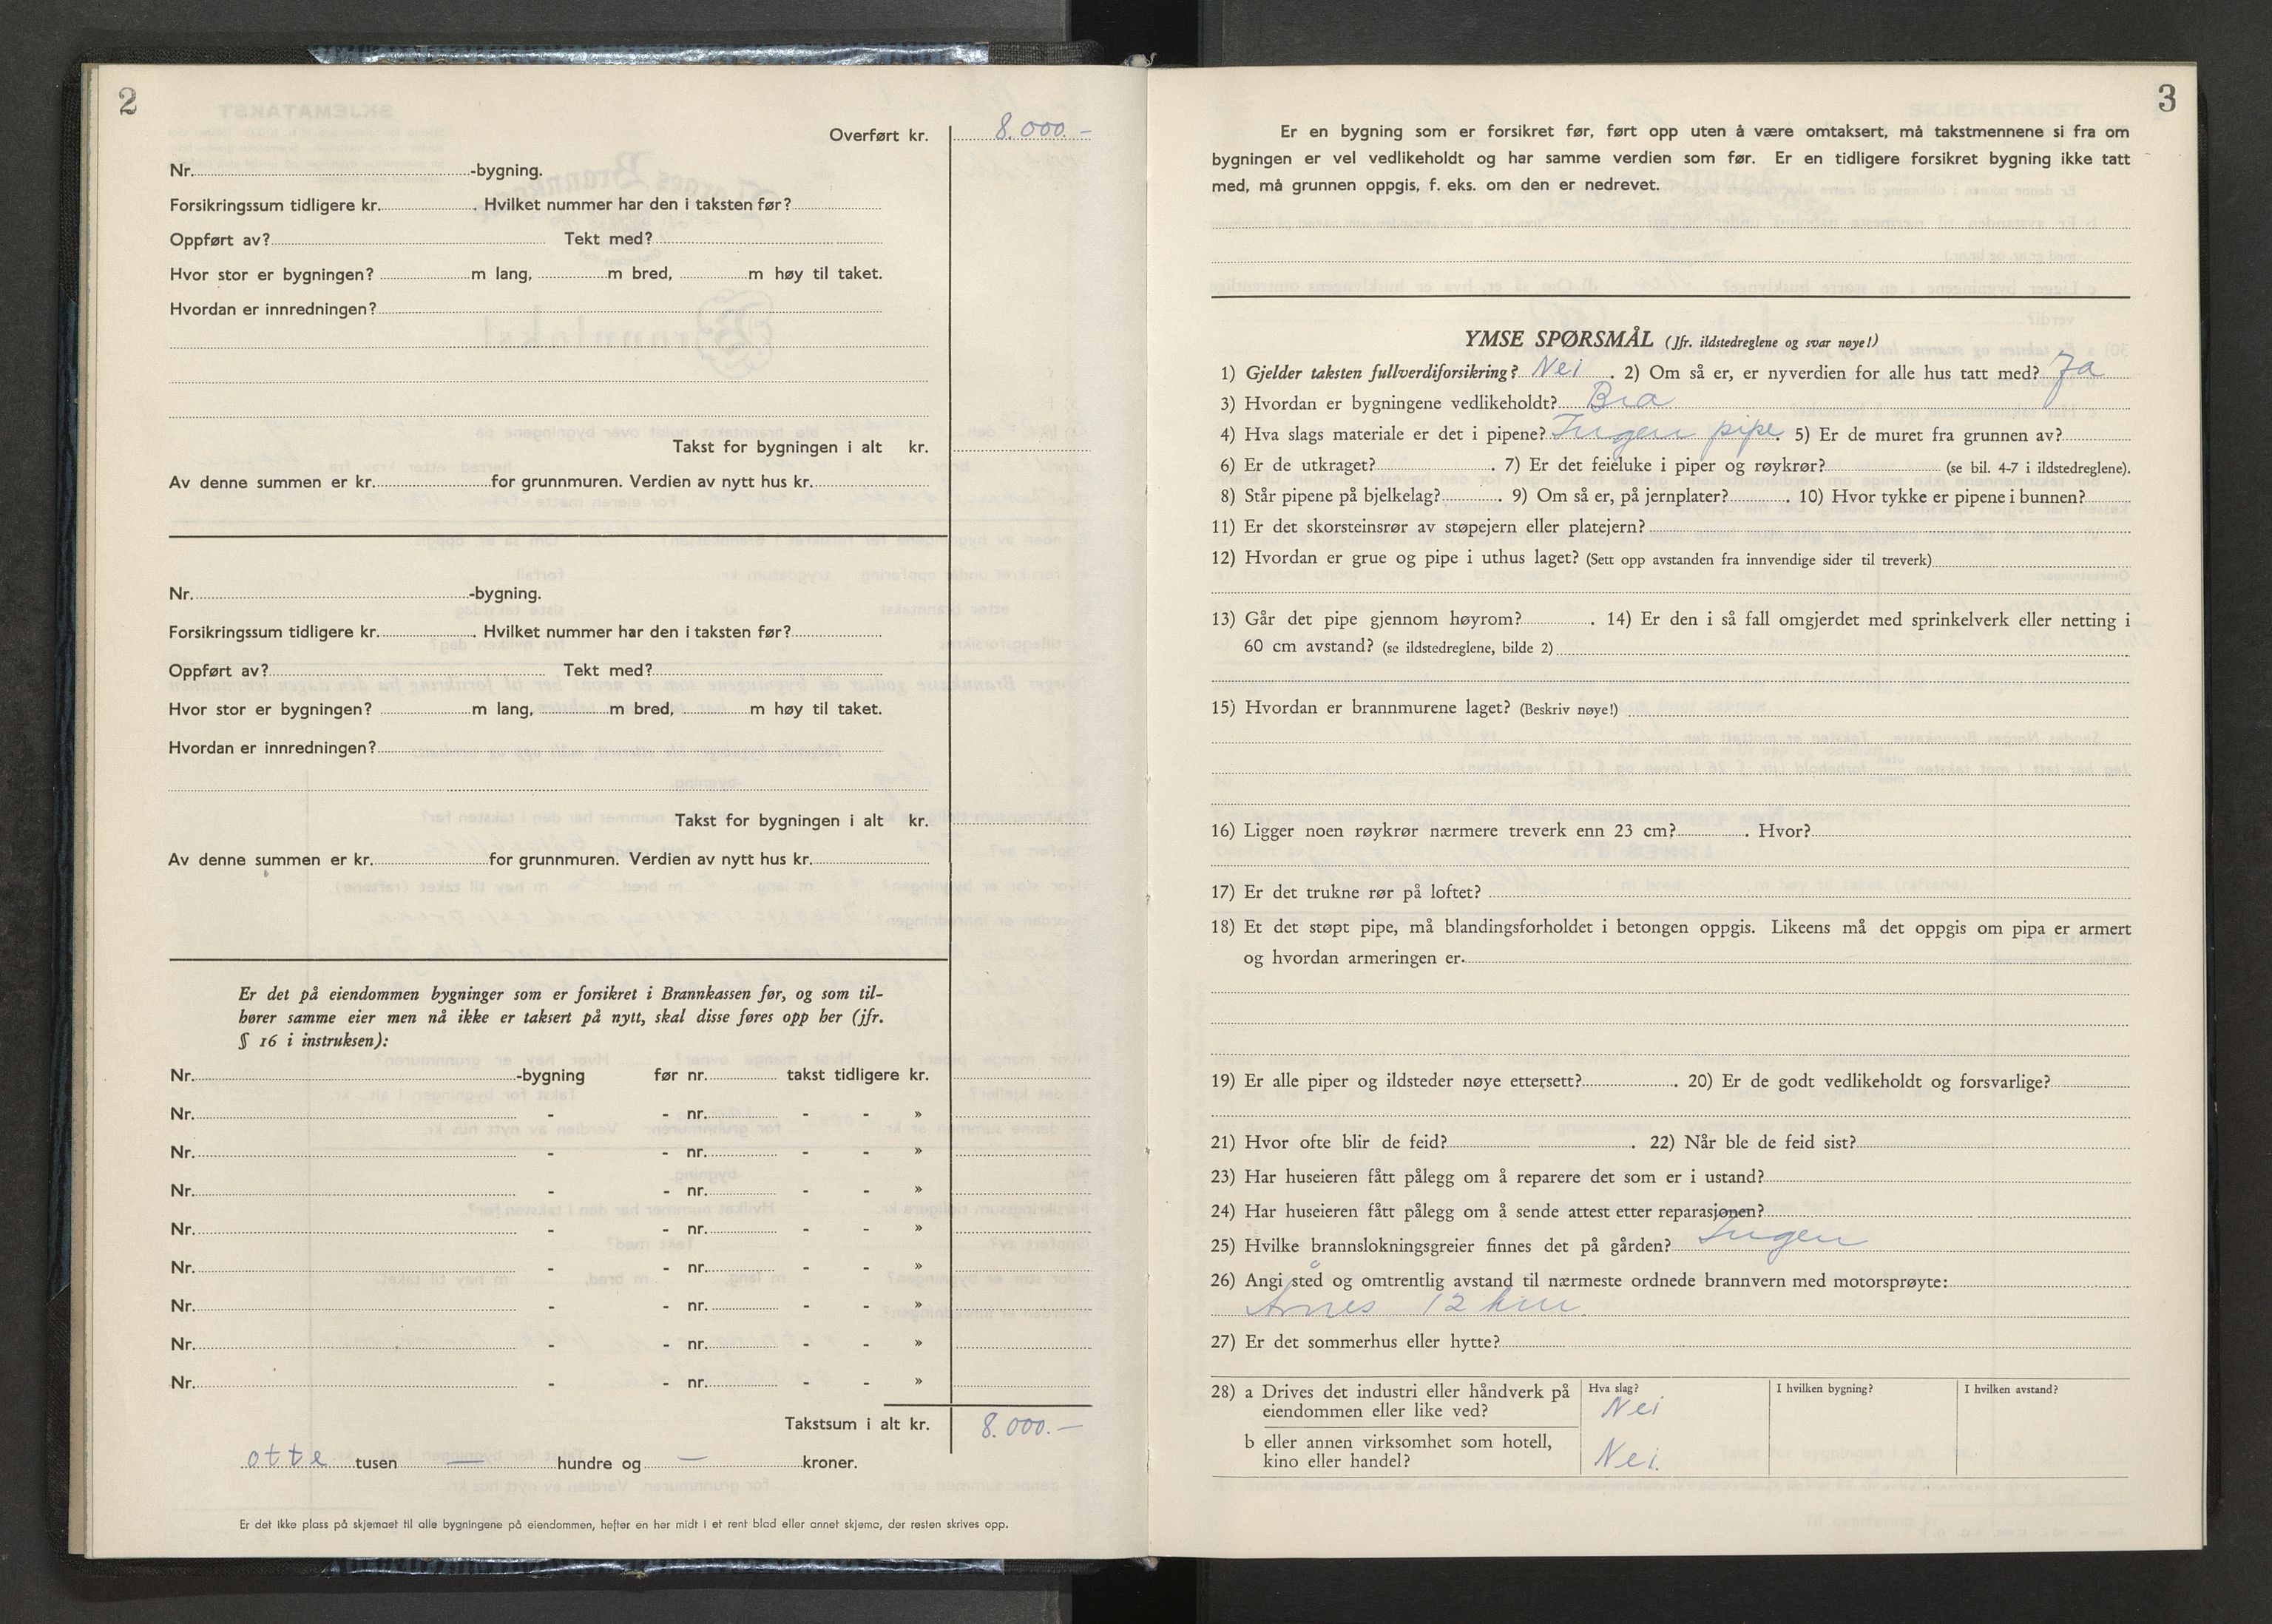 2
Overført kr. 8.000.–
Nr. -bygning.
Forsikringssum tidligere kr. . Hvilket nummer har den i taksten før?
Oppført av? Tekt med?
Hvor stor er bygningen? m lang, m bred, m høy til taket.
Hvordan er innredningen?
Takst for bygningen i alt kr.
Av denne summen er kr. for grunnmuren. Verdien av nytt hus kr.
Nr. -bygning.
Forsikringssum tidligere kr. . Hvilket nummer har den i taksten før?
Oppført av? Tekt med?
Hvor stor er bygningen? m lang, m bred, m høy til taket.
Hvordan er innredningen?
Takst for bygningen i alt kr.
Av denne summen er kr. for grunnmuren. Verdien av nytt hus kr.
Er det på eiendommen bygninger som er forsikret i Brannkassen før, og som til-
hører samme eier men nå ikke er taksert på nytt, skal disse føres opp her (jfr.
§ 16 i instruksen):
Nr. -bygning før nr. takst tidligere kr.
Nr. - - nr. - - »
Nr. - - nr. - - »
Nr. - - nr. - - »
Nr. - - nr. - - »
Nr. - - nr. - - »
Nr. - - nr. - - »
Nr. - - nr. - - »
Nr. - - nr. - - »
Takstsum i alt kr. 8.000.–
otte tusen — hundre og — kroner.
Er det ikke plass på skjemaet til alle bygningene på eiendommen, hefter en her midt i et rent blad eller annet skjema, der resten skrives opp.
3
Er en bygning som er forsikret før, ført opp uten å være omtaksert, må takstmennene si fra om
bygningen er vel vedlikeholdt og har samme verdien som før. Er en tidligere forsikret bygning ikke tatt
med, må grunnen oppgis, f. eks. om den er nedrevet.
YMSE SPØRSMÅL (Jfr. ildstedreglene og svar nøye!)
1) Gjelder taksten fullverdiforsikring? Nei . 2) Om så er, er nyverdien for alle hus tatt med? Ja
3) Hvordan er bygningene vedlikeholdt? Bra
4) Hva slags materiale er det i pipene? Ingen pipe. 5) Er de muret fra grunnen av?
6) Er de utkraget? . 7) Er det feieluke i piper og røykrør? (se bil. 4-7 i ildstedreglene).
8) Står pipene på bjelkelag? . 9) Om så er, på jernplater? . 10) Hvor tykke er pipene i bunnen?
11) Er det skorsteinsrør av støpejern eller platejern?
12) Hvordan er grue og pipe i uthus laget? (Sett opp avstanden fra innvendige sider til treverk)
13) Går det pipe gjennom høyrom? . 14) Er den i så fall omgjerdet med sprinkelverk eller netting i
60 cm avstand? (se ildstedreglene, bilde 2)
15) Hvordan er brannmurene laget? (Beskriv nøye!)
16) Ligger noen røykrør nærmere treverk enn 23 cm? . Hvor?
17) Er det trukne rør på loftet?
18) Et det støpt pipe, må blandingsforholdet i betongen oppgis. Likeens må det oppgis om pipa er armert
og hvordan armeringen er.
19) Er alle piper og ildsteder nøye ettersett? . 20) Er de godt vedlikeholdt og forsvarlige?
21) Hvor ofte blir de feid? . 22) Når ble de feid sist?
23) Har huseieren fått pålegg om å reparere det som er i ustand?
24) Har huseieren fått pålegg om å sende attest etter reparasjonen?
25) Hvilke brannslokningsgreier finnes det på gården? Ingen
26) Angi sted og omtrentlig avstand til nærmeste ordnede brannvern med motorsprøyte:
Årnes 12 km.
27) Er det sommerhus eller hytte?
28) a Drives det industri eller håndverk på
eiendommen eller like ved?
Hva slag? I hvilken bygning? I hvilken avstand?
Nei
b eller annen virksomhet som hotell,
kino eller handel?
Nei.